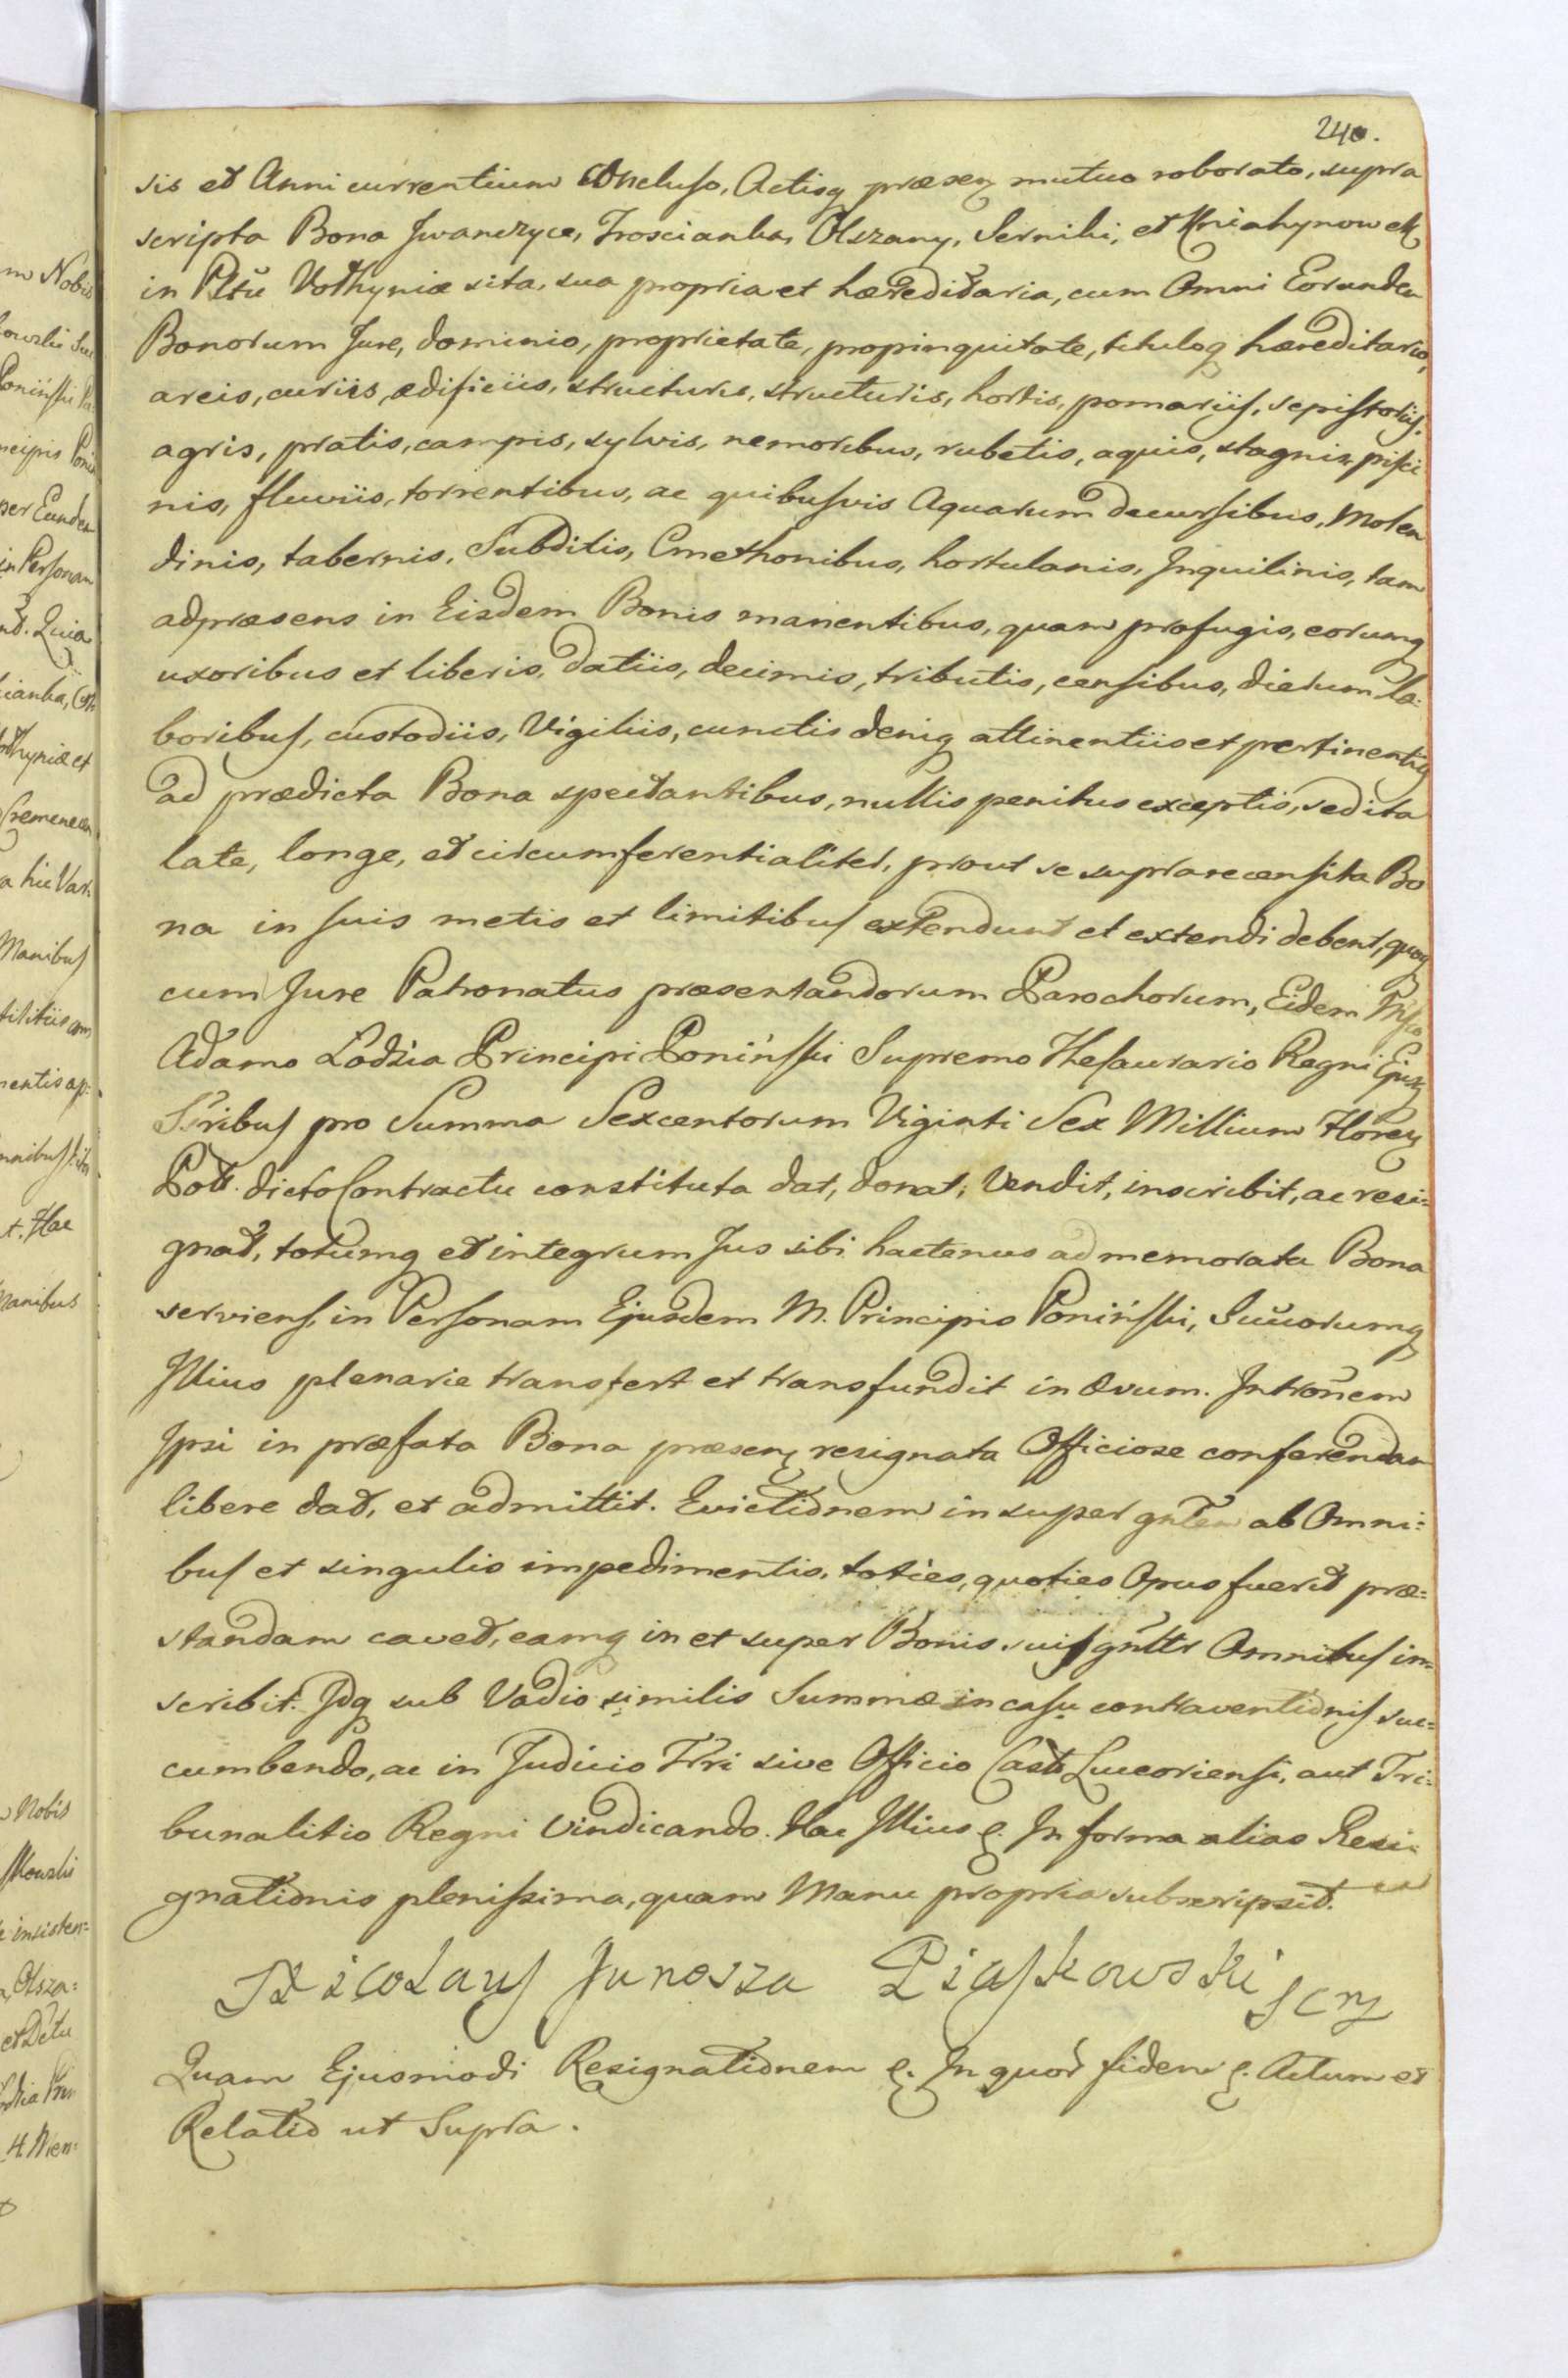 240.
sis et Anni currentium Concluso, Actisq praesen mutuo roborato, supra
scripta Bona Jwanczyce, Troscianka, Olszany, Serniki, et Kniahynowek
in Pltũ Volhyniæ sita, sua propria et hæreditaria, cum Omni Eorundem
Bonorum Jure, dominio, proprietate, propinquitate, tituloq hæreditario,
areis, curiis, ædificiis, structuris, structuris, hortis, pomariis,
agris, pratis, campis, sylvis, nemoribus, rubetis, aquis, stagnis, pisci
nis, fluviis, torrentibus, ac quibusvis Aquarum decursibus, Molen
dinis, tabernis, Subditis, Cmethonibus, hortulanis, Jnquilinis, tam
adpræsens in Eisdem Bonis manentibus, quam profugis, eorumq
uxoribus et liberis, datiis, decimis, tributis, censibus, dierum la:
boribus, custodiis, Vigiliis, cunctis deniq attinentiis et pertinentiis
ad prædicta Bona spectantibus, nullis penitus exceptis, sed ita
late, longe, et circumferentialiter, prout se suprarecensita Bo
na in suis metis et limitibus extendunt et extendi debent, quoq
cum Jure Patronatus præsentandorum Parochorum, Eidem
Adamo Łodzia Principi Poniński Supremo Thesaurario Regni Ejusq
Sŕibus pro Summa Sexcentorum Viginti Sex Millium Floren
Poll. dicto Contractu constituta dat, donat, Vendit, inscribit, ac resi=
gnat, totumq et integrum Jus sibi hactenus ad memorata Bona
serviens, in Personam Ejusdem M. Principis Poniński, Suũorumq
Jllius plenarie transfert et transfundit in Ævum. Jntrõnem
Jpsi in præfata Bona præsen resignata Officiose conferendam
libere dat, et admittit. Evictionem insuper gnlem ab Omni=
bus et singulis impedimentis, toties, quoties Opus fuerit præ=
standam cavet, eamq in et super Bonis suis gnltr Omnibus in=
scribit. Jdq sub Vadio similis Summæ in casu contraventionis suc=
cumbendo, ac in Judicio Trri sive Officio Castr Luceoriensi, aut Tri:
bunalitio Regni Vindicando. Hac Jllius &. Jn forma alias Resi=
gnationis plenissima, quam Manu propria subscripsit.
Nicolaus Junosza Piaskowski
Quam Ejusmodi Resignationem &. Jn quor fidem &. Actum et
Relatio ut Supra.